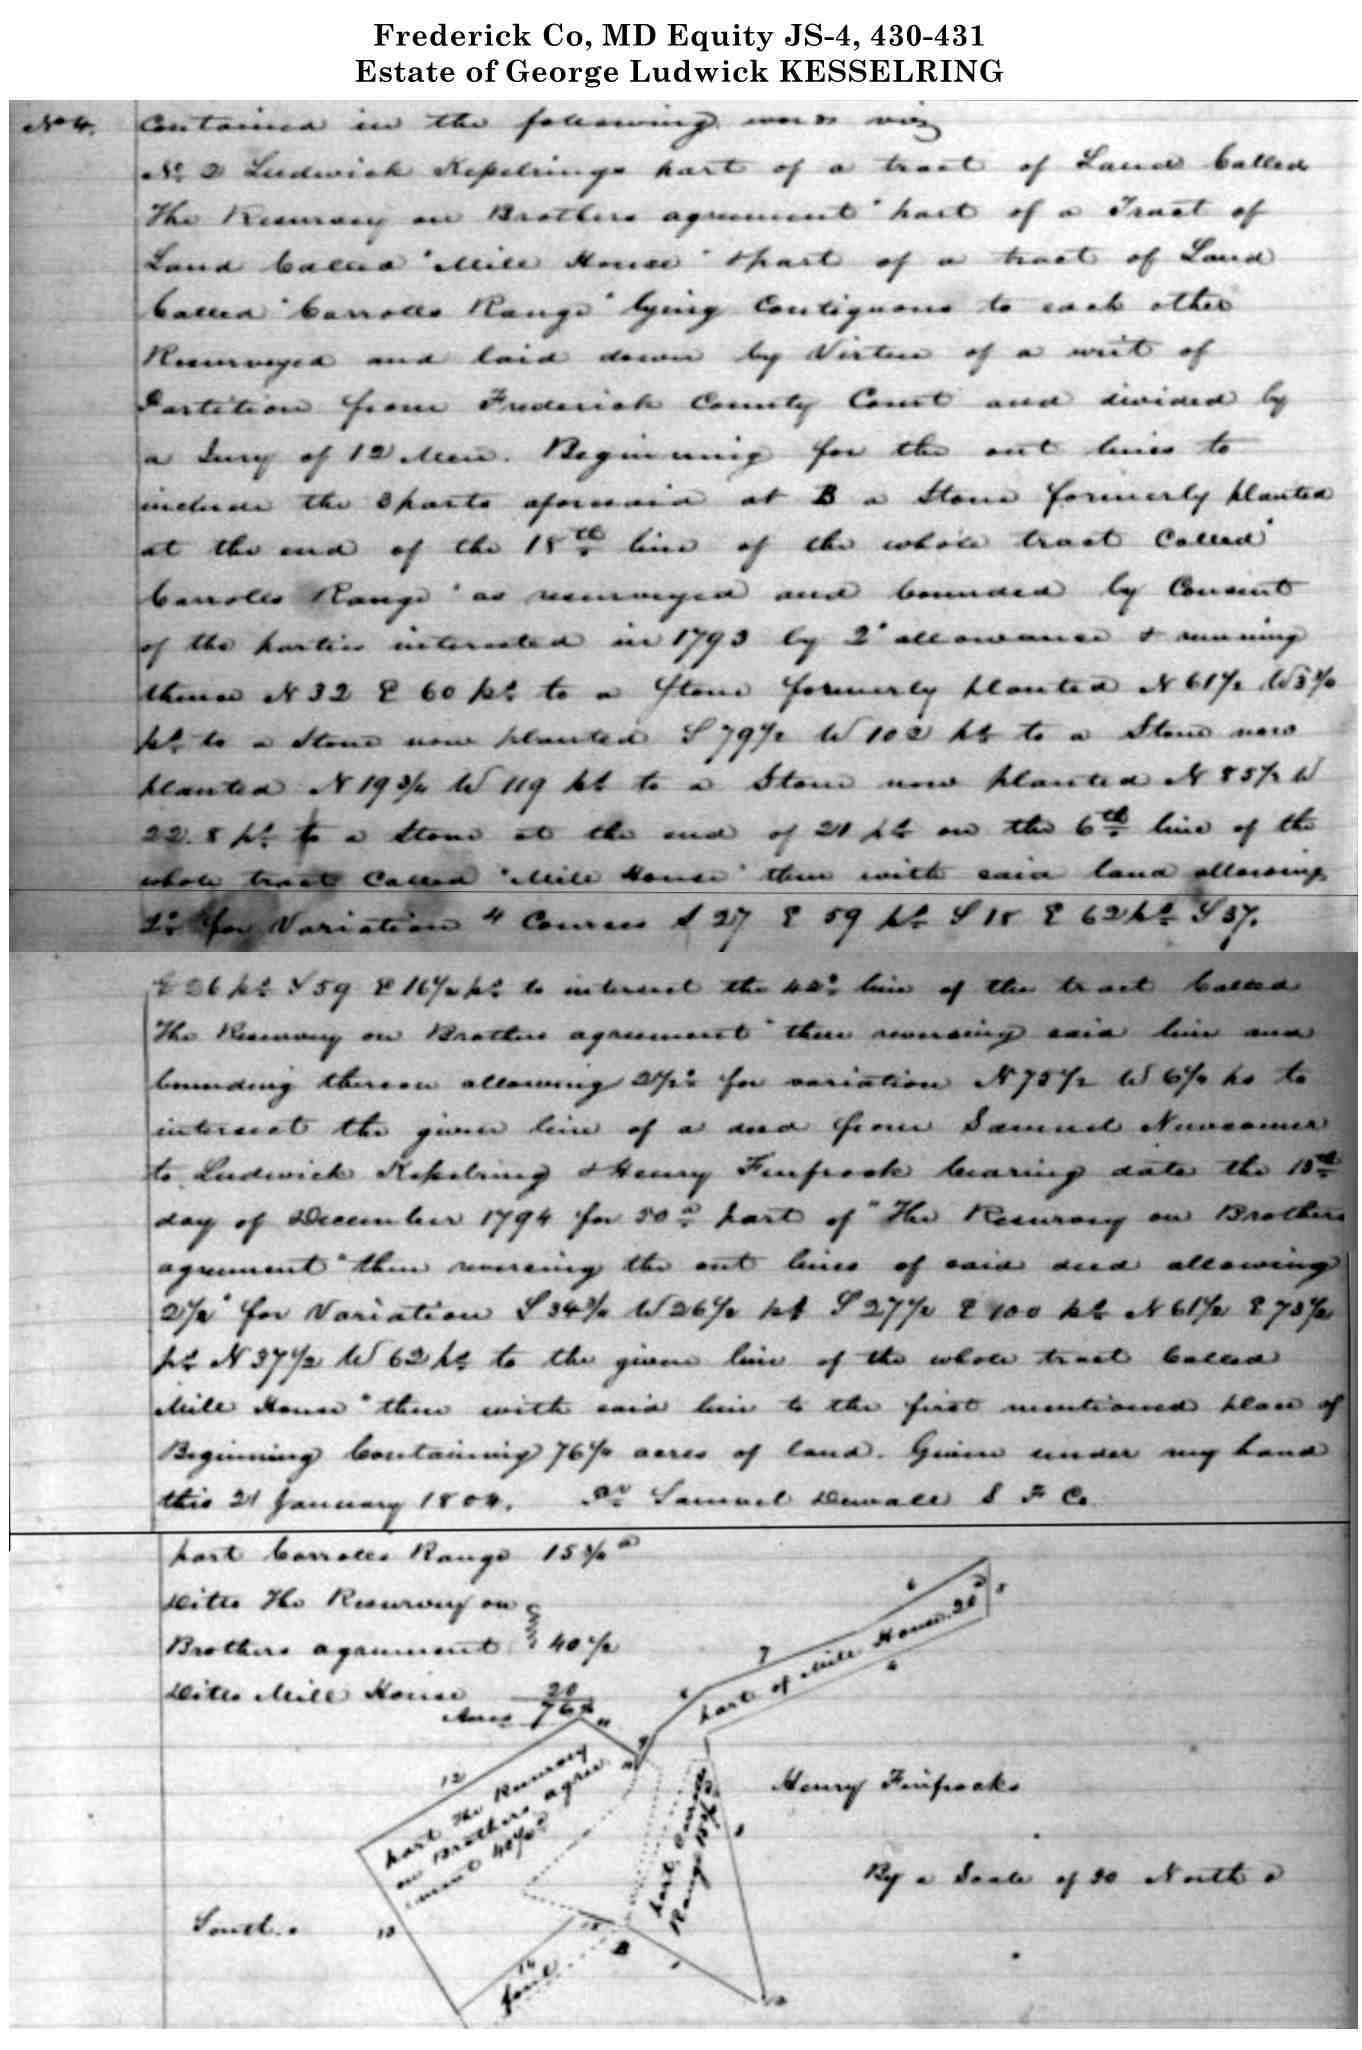 Frederick Co, MD Equity JS-4, 430-431
Estate of George Ludwick KESSELRING
No 4. Contained in the following words viz
No 2 Ludwick Keſselrings part of a tract of Land Called
The Resurvey on Brothers agreement" part of a Tract of
Land Called "Mill House" & part of a tract of Land
Called "Carrolls Range" lying Contiguous to each other
Resurveyed and laid down by Virtue of a writ of
Partition from Frederick County Court and divided by
a Jury of 12 Men. Beginning for the out lines to
include the 3 parts aforesaid at B a Stone formerly planted
at the end of the 18th line of the whole tract Called"
Carrolls Range" as resurveyed and bounded by Consent
of the parties interested in 1793 by 2° allowance & running
thence N 32 E 60 ps to a Stone formerly planted N 61½ W
ps to a Stone now planted S 79½ W 102 ps to a Stone now
planted N 19¾ W 119 ps to a Stone now planted N 85½ W
22.8 ps to a Stone at the end of 21 ps on the 6th line of the
whole tract Called "Mill House" then with said land allowing
2° for Variation 4 Courses S 27 E 59 ps S 18 E 62 ps S 37.
E 26 ps S 59 E 16½ ps to intersect the 42d line of the tract Called
The Resurvey on Brothers agreement" then reversing said line and
bounding thereon allowing 2½° for variation N 75½ W 6½ ps to
intersect the given line of a deed from Samuel Newcomer
to Ludwick Keſselring & Henry Finfrock bearing date the 15th
day of December 1794 for 50 a part of "The Resurvey on Brothers
agreement" then reversing the out lines of said deed allowing
2½° for Variation S 34¾ W 26½ ps S 27½ E 100 ps N 61½ E 73½
ps N 37½ W 62 ps to the given line of the whole tract Called
Mill House" then with said line to the first mentioned place of
Beginning Containing 76¼ acres of land. Given under my hand
this 21 January 1804. Pr Samuel Duvall S F Co.
part Carrolls Range 15¾ a
Ditto The Resurvey on
Brothers agreement 40½
Ditto Mill House 20
Acres 76¼
part of Mill House 20
part The Resurvey
on Brothers agree
ment 40½ a
part Carrolls
Range 15¾
Henry Finfrocks
By a Scale of 20 North
South
12
13
14
15
B
7
6